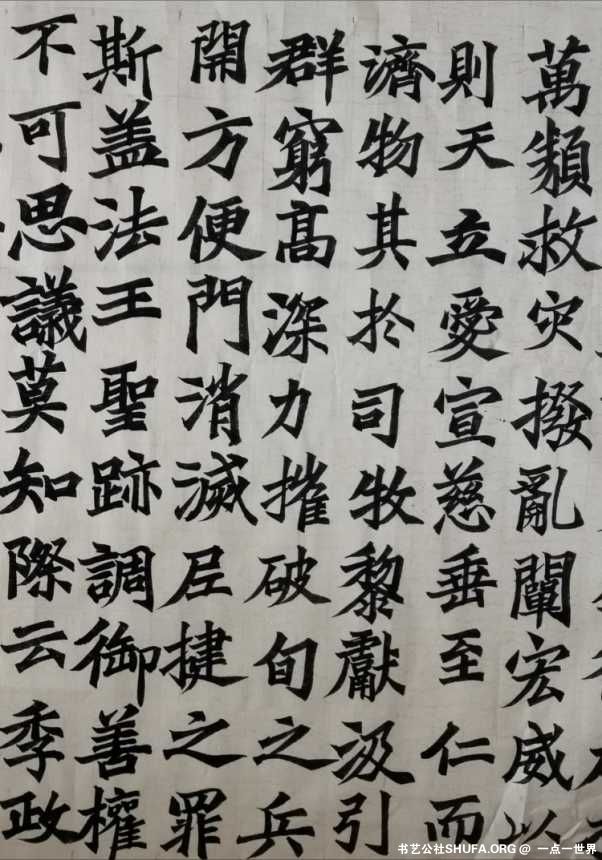 萬類救灾撥亂闡宏威以
則天立愛宣慈垂至仁而
濟物其於司牧黎獻汲引
群窮高深力摧破旬之兵
開方便門消滅𡰱揵之罪
斯盖法王聖跡調御善權
不可思議莫知際云季政
书艺公社SHUFA.ORG @ 一点一世界